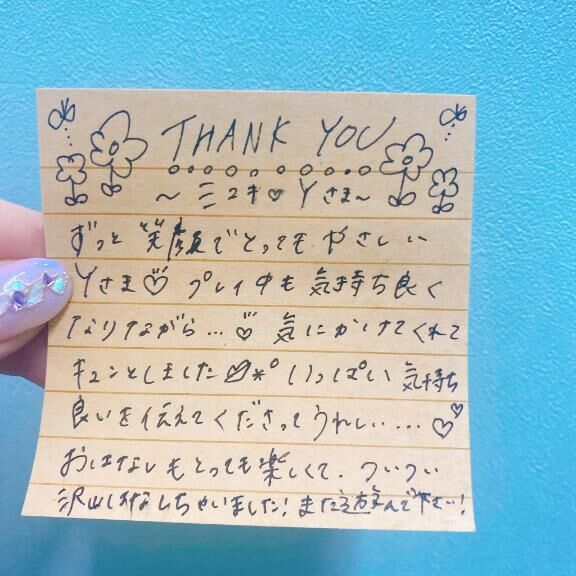 THANK YOU
~ミユキ♡Yさま~
ずっと笑顔でとってもやさしい
Yさま♡ プレイ中も気持ち良く
なりながら…♡ 気にかけてくれて
キュンとしました♡*° いっぱい気持ち
良いを伝えてくださってうれしい…♡♡
おはなしもとっても楽しくて、ついつい
沢山しはなしちゃいました!また遊んで下さい!